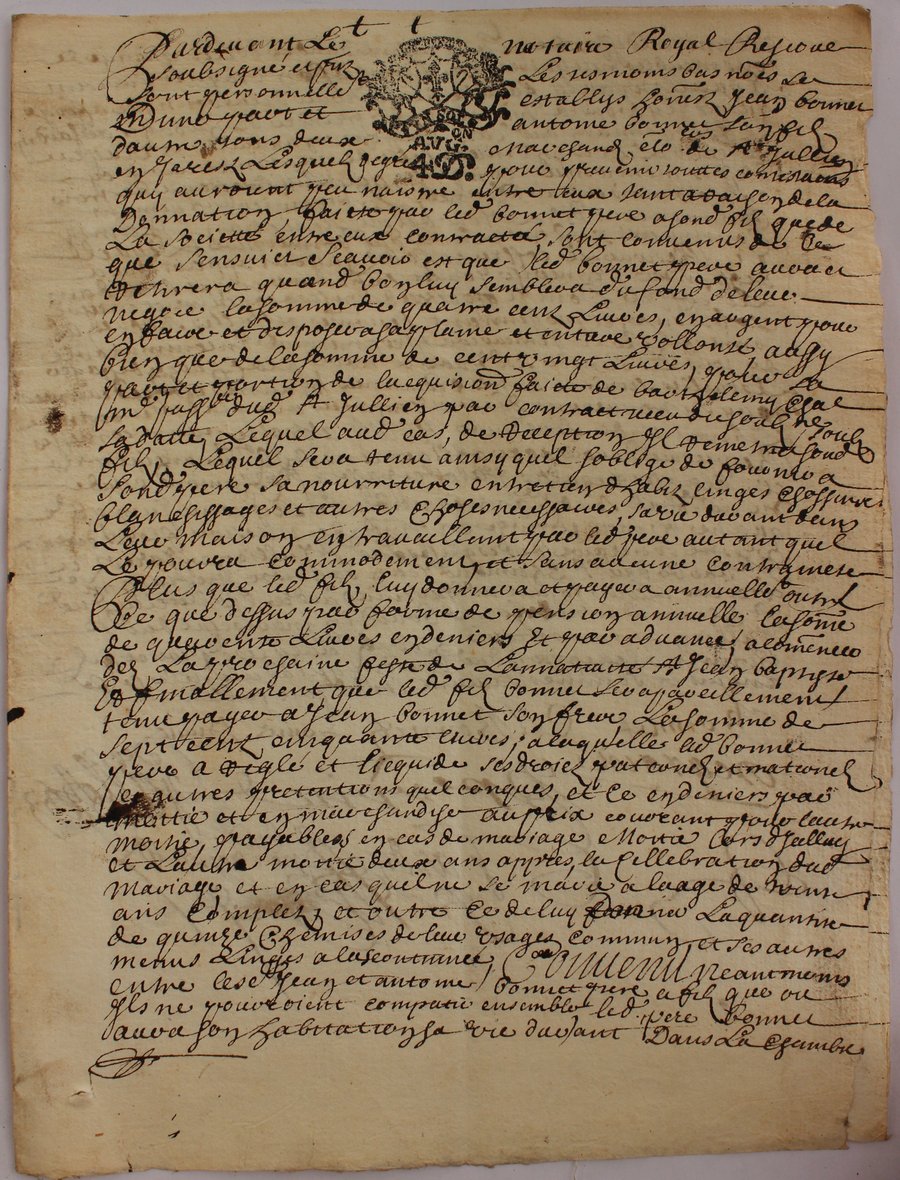 Pardevant Le notaire Royal Reserve
soubsigné et presz Les tesmoins bas nōés se
sont personnelle establys honest Jean bonnet
en d'une part et antoine bonnet son fils
dautre tous deux marchand de St Jullien
en Jarest Lesquels de gré pour prevenir toutes contestaons
quy auroient peu naistre entre eux tant a raison de la
Donnation faicte par led bonnet pere a sond fils que de
La societté entre eux contractée sont convenus de ce
que s'ensuict scavoir est que led bonnet pere aura et
Retirera quand bon luy semblera du fond de leur
negoce la somme de quatre cent Livres, en argent pour
en faire et disposer a sa plaine et entiere vollonté aussy
bien que de la somme de cent vingt Livres, pour la
part et portion de lacquisiōn faicte de barthelemy Chal
dud St Jullien par contract receu du soubz ne soubz
sa datte, Lequel aud cas, de Reception Il Remettra a sond
fils, Lequel sera tenu ainsy quil soblige de fournir a
sond pere sa nourriture entretien dhabitz linges chossures
blanchissages et autres choses necessaires, sa vie durant dans
Leur maison en travaillant par led pere autant quil
Le pourra commodement, et sans aucune contrainte
Plus que led fils, luy donnera et payera annuellemt outre
Ce que dessus par forme de pension annuelle la somē
de quarente Livres en deniers et par advance, a comēncer
dez La prochaine feste de La nattivitté St Jean baptiste
Et finallement que led fils bonnet sera pareillement
tenu payer a Jean bonnet son frere La somme de
sept cent cinquante livres, a laquelle led bonnet
pere a Reglé et licquidé ses droicts paternels et maternels
et autres pretentions quelconques, et ce en deniers par
moittié et en marchandise au prix courant pour lautre
moitié, payables en cas de mariage Moitié Lors d'Jalluy
et L'autre moitié deux ans appres la cellebration dud
Mariage et en cas quil ne se marie a laage de trente
ans Complets et outre ce de luy donner La quantité
de quinze chemises de leur usages commun et ses autres
menus Linges a la accoutumee, Convenu neantmoins
entre lesd Jean et antoine bonnet pere et fils que ou
Ils ne pourroient compatir ensemble led pere bonnet
aura son habitation sa vie durant Dans La chambre